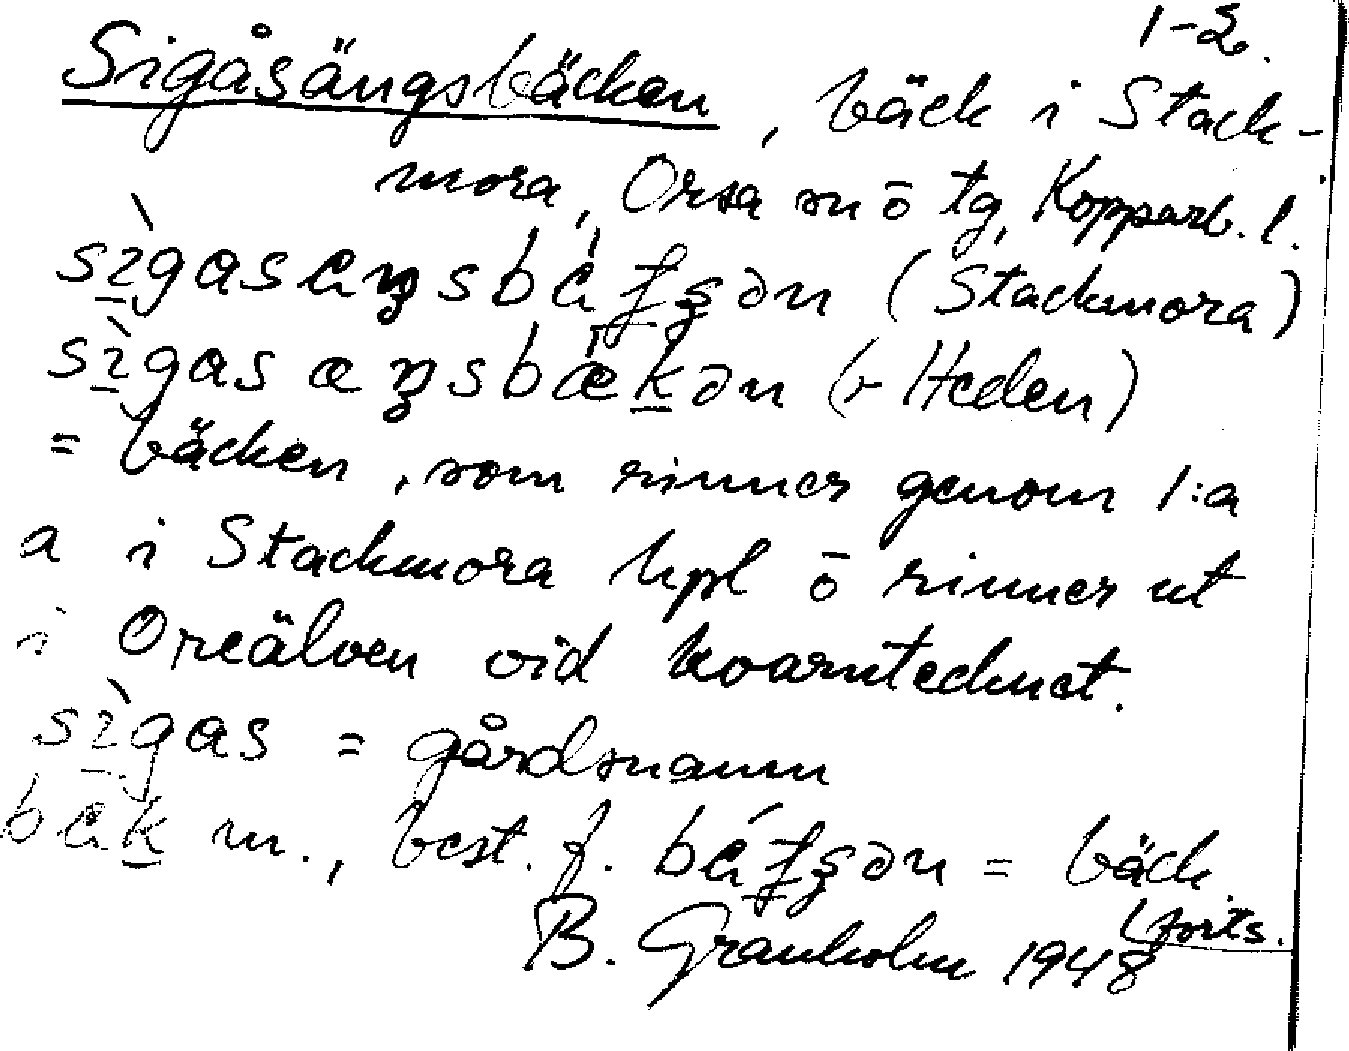 1-2.
Sigåsängsbäcken, bäck i Stack-
mora, Orsa sn ō tg, Kopparb. l.
sìgas aŋsbáʄʂən (Stackmora)
sìgas æŋsbǽkən (- Heden)
= bäcken, som rinner genom l:a
a i Stackmora hpl ō rinner ut
i Oreälven vid kvarntecknet.
sìgas = gårdsnamn
bak m., best. f. báʄʂən = bäck.
(forts.
B. Granholm 1948